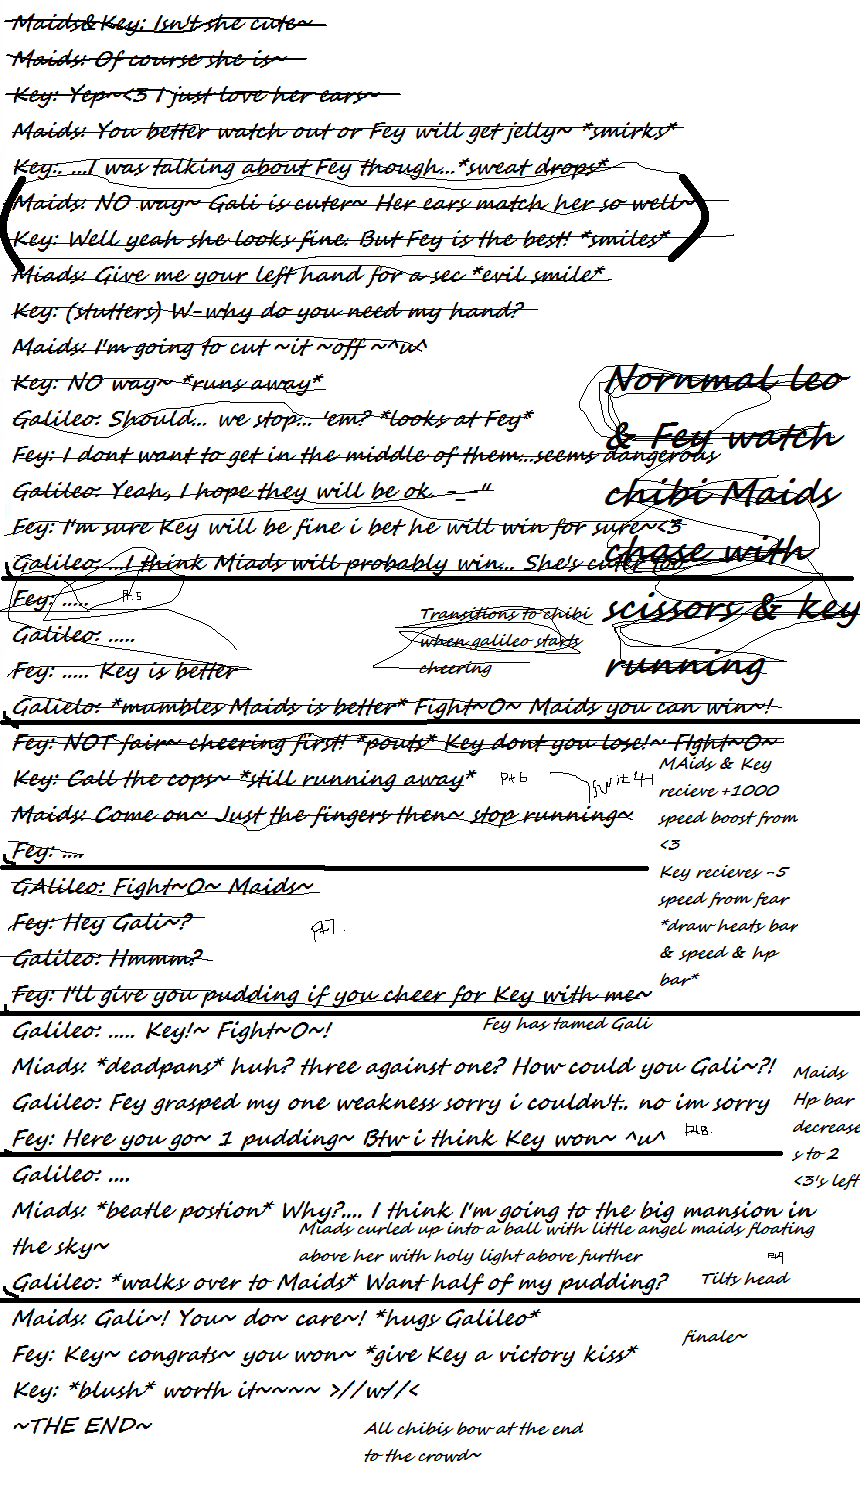 Maids&Key: Isn't she cute~
Maids: Of course she is~
Key: Yep~<3 I just love her ears~
Maids: You better watch out or Fey will get jelly~ *smirks*
Key:. ...I was talking about Fey though...*sweat drops*
Maids: NO way~ Gali is cuter~ Her ears match her so well~
Key: Well yeah she looks fine. But Fey is the best! *smiles*
Miads: Give me your left hand for a sec *evil smile*
Key: (stutters) W-why do you need my hand?
Maids: I'm going to cut ~it ~off ~^u^
Key: NO way~ *runs away*
Galileo: Should... we stop... 'em? *looks at Fey*
Fey: I dont want to get in the middle of them...seems dangerous
Galileo: Yeah, I hope they will be ok. -_-"
Fey: I'm sure Key will be fine i bet he will win for sure~<3
Galileo: ...I think Miads will probably win... She's cuter too
Nornmal leo
& Fey watch
chibi Maids
chase with
scissors & key
running
Fey: .....
Pt.5
Galileo: .....
Fey: ..... Key is better
Transitions to chibi
when galileo starts
cheering
Galielo: *mumbles Maids is better* Fight~O~ Maids you can win~!
Fey: NOT fair~ cheering first! *pouts* Key dont you lose!~ FIght~O~
Key: Call the cops~ *still running away*
Pt 6
Maids: Come on~ Just the fingers then~ stop running~
Fey: ....
MAids & Key
recieve +1000
speed boost from
<3
Key recieves -5
speed from fear
*draw heats bar
& speed & hp
bar*
GAlileo: Fight~O~ Maids~
Fey: Hey Gali~?
Pt7.
Galileo: Hmmm?
Fey: I'll give you pudding if you cheer for Key with me~
Galileo: ..... Key!~ Fight~O~!
Fey has tamed Gali
Miads: *deadpans* huh? three against one? How could you Gali~?!
Galileo: Fey grasped my one weakness sorry i couldn't.. no im sorry
Fey: Here you go~ 1 pudding~ Btw i think Key won~ ^u^
Pt8.
Maids
Hp bar
decrease
s to 2
<3's left
Galileo: ....
Miads: *beatle postion* Why?.... I think I'm going to the big mansion in
the sky~
Miads curled up into a ball with little angel maids floating
above her with holy light above further
Pt9
Galileo: *walks over to Maids* Want half of my pudding?
Tilts head
Maids: Gali~! You~ do~ care~! *hugs Galileo*
Fey: Key~ congrats~ you won~ *give Key a victory kiss*
finale~
Key: *blush* worth it~~~~ >//w//<
~THE END~
All chibis bow at the end
to the crowd~